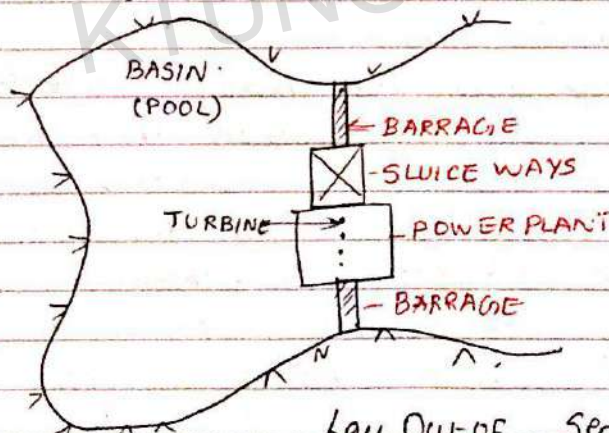 KTUNO
BASIN.
(POOL)
BARRAGE
SLUICE WAYS
TURBINE
POWER PLANT
BARRAGE
Lay Out of